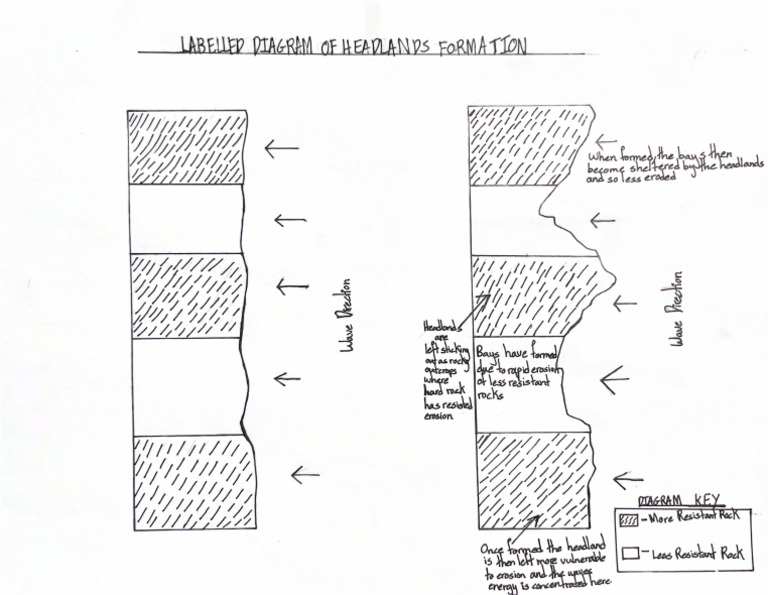 LABELLED DIAGRAM OF HEADLANDS FORMATION
When formed, the bays then
become sheltered by the headlands
and so less eroded
Wave Direction
Wave Direction
Headlands
are
left sticking
out as rocky
outcrops
where
hard rock
has resisted
erosion
Bays have formed
due to rapid erosion
of less resistant
rocks
Once formed the headland
is then left more vulnerable
to erosion and the waves
energy is concentrated here
DIAGRAM KEY
- More Resistant Rock
- Less Resistant Rock